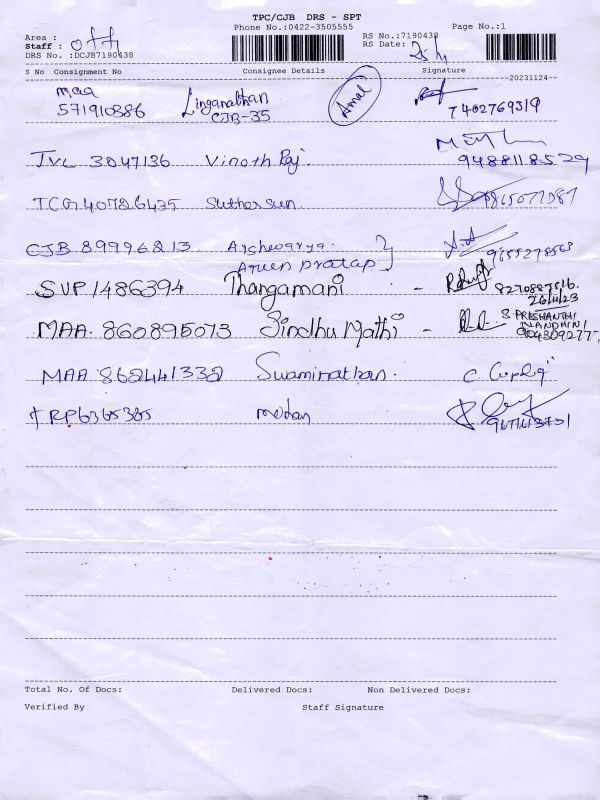 TPC/CJB DRS - SPT
Phone No.:0422-3505555
Page No.:1
RS No.:7190438
RS Date:
Area :
Staff : off
DRS No. :DCJB7190438
S No Consignment No Consignee Details Signature
20231124
maa
571910386 Linganathan
CJB-35 Amal 7402769319
JVL 3047136 Vinoth Raj. 9488118529
TCG 40726435 Suthersun
CJB 89996213 Aishwarya
Arun pratap 9655278563
SUP 1486394 Thangamani - 8270887516.
26/11/23
MAA 860895073 Sindhu Mathi - PRESHANTHI
NANDHINI
904309277
MAA 862441332 Swaminathan.
TRP6365385 mohan 9671613731
Total No. Of Docs: Delivered Docs: Non Delivered Docs:
Verified By Staff Signature